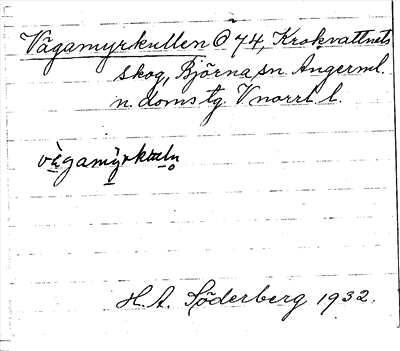 Vägamyrkullen @ 74, Krokvattnets
skog, Björna sn. Ångerml.
n. doms tg. Vnorrl l.
vägamýrkuln
H. A. Söderberg 1932.